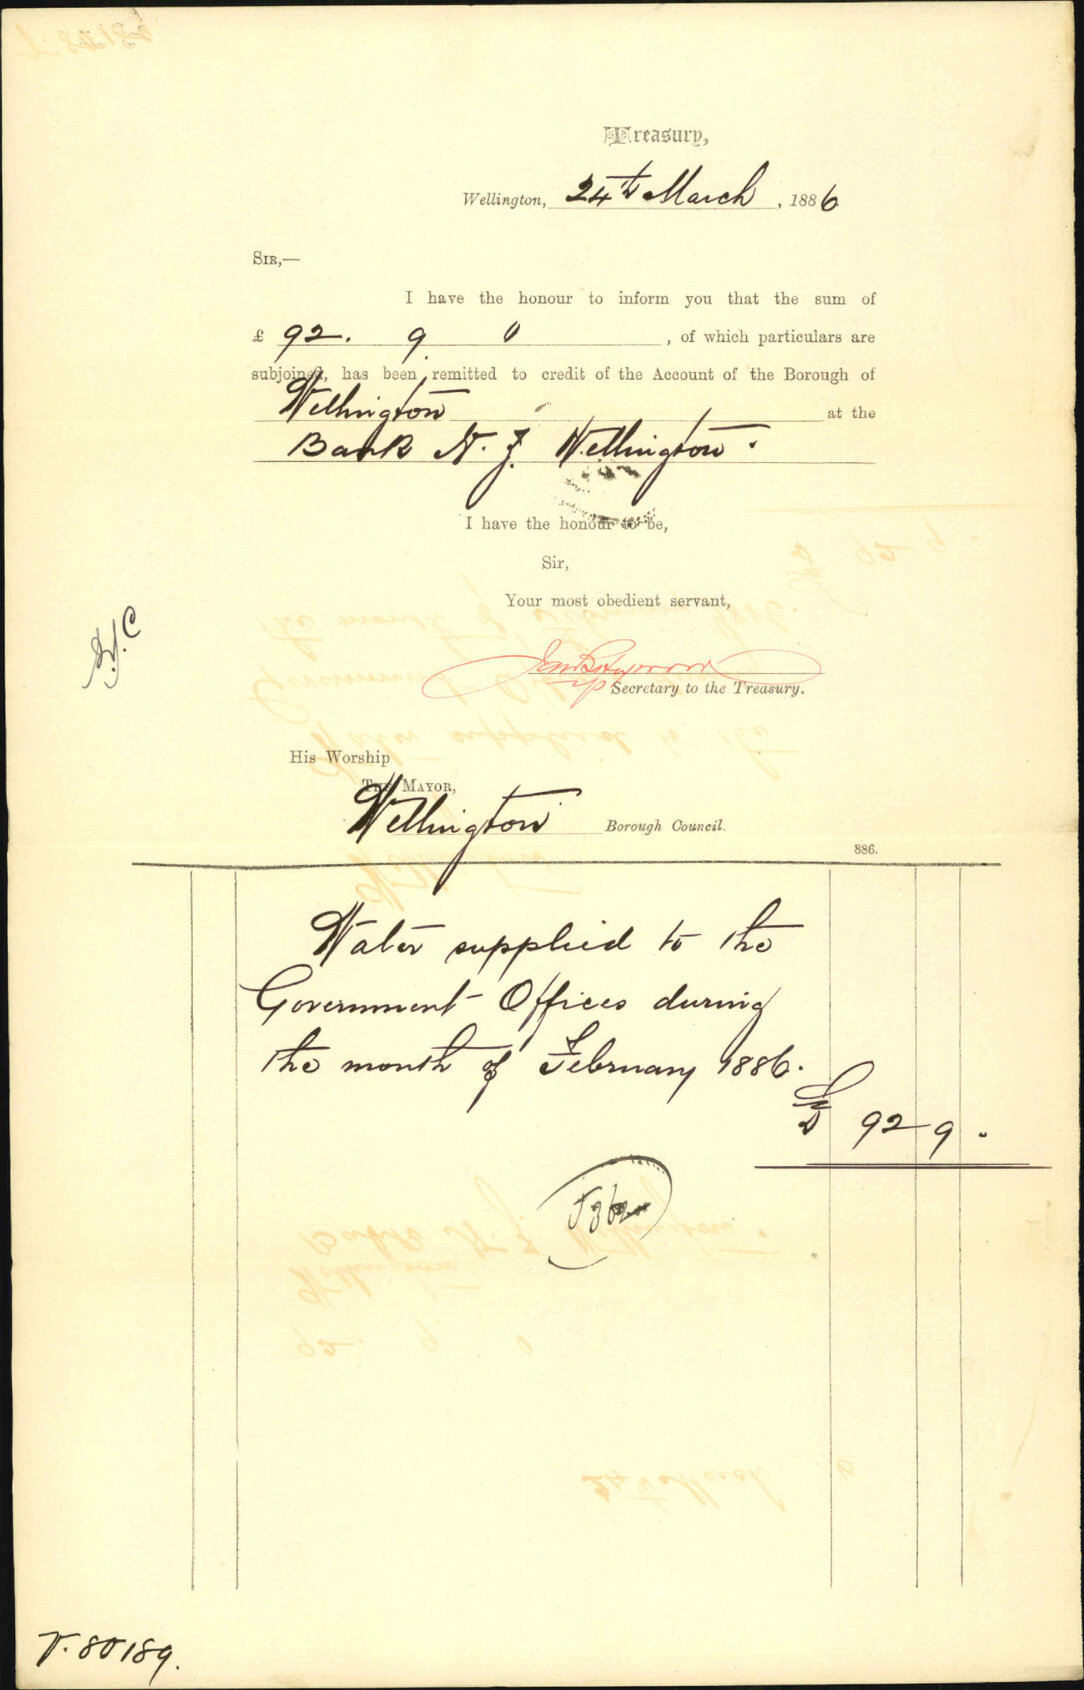 Treasury,
Wellington, 24th March, 1886
SIR,—
I have the honour to inform you that the sum of
£ 92. 9. 0, of which particulars are
subjoined, has been remitted to credit of the Account of the Borough of
Wellington at the
Bank N. Z. Wellington.
I have the honour to be,
Sir,
Your most obedient servant,
Secretary to the Treasury.
His Worship
THE MAYOR,
Wellington Borough Council.
886.
Water supplied to the
Government Offices during
the month of February 1886.
£ 92 9 .